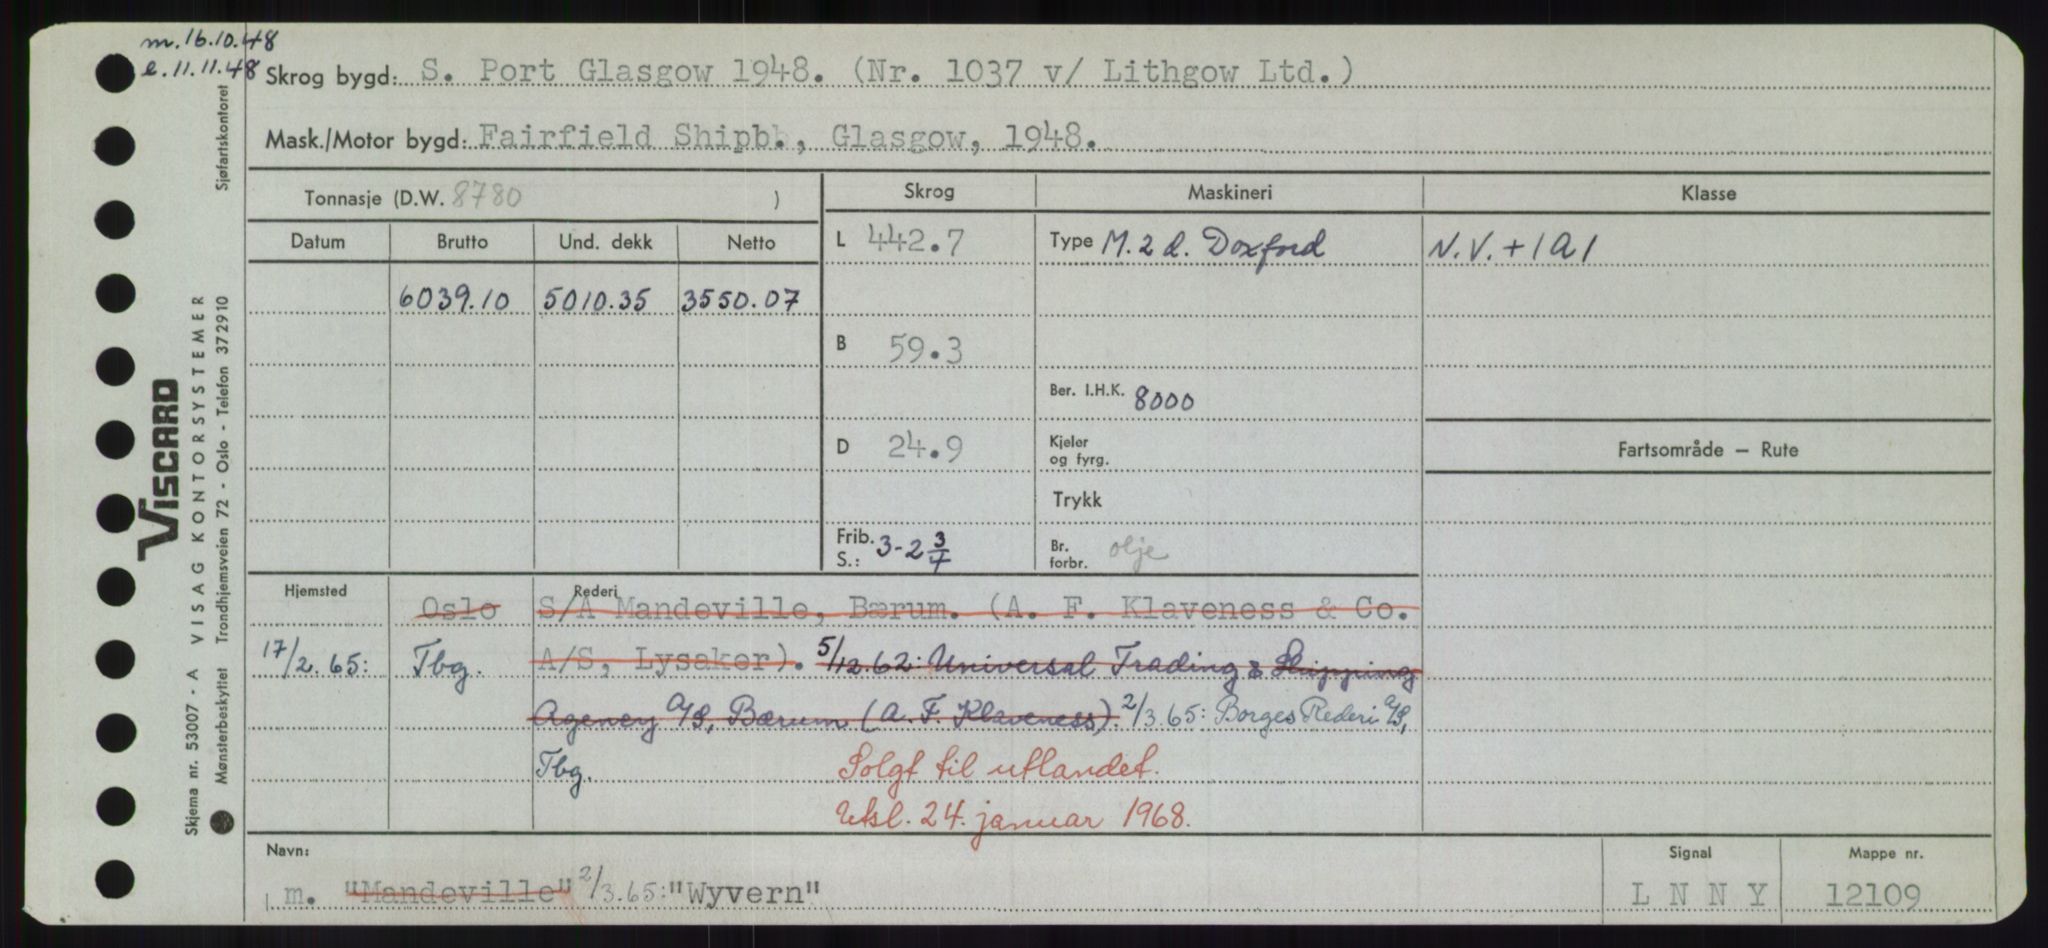 m. 16.10.48
e. 11.11.48
Skrog bygd: S. Port Glasgow 1948. (Nr. 1037 v/ Lithgow Ltd.)
Mask./Motor bygd: Fairfield Shipbb., Glasgow, 1948.
Tonnasje (D.W. 8780 )
Skrog Maskineri Klasse
Datum Brutto Und. dekk Netto
L 442.7 Type M. 2 d. Doxford N.V. + 1A1
6039.10 5010.35 3550.07
B 59.3
Ber. I.H.K. 8000
D 24.9 Kjeler og fyrg. Fartsområde – Rute
Trykk
Frib. S.: 3-2 3/4 Br. forbr. olje
Hjemsted Rederi
Oslo S/A Mandeville, Bærum. (A. F. Klaveness & Co.
17/2.65: Tbg. A/S, Lysaker). 5/12.62: Universal Trading & Shipping
Agency A/S, Bærum (A. F. Klaveness). 2/3.65: Borges Rederi A/S,
Tbg. Solgt til utlandet.
Utsl. 24. januar 1968.
Navn: Signal Mappe nr.
m. "Mandeville" 2/3.65: "Wyvern" L N N Y 12109
VISCARD
VISAG KONTORSYSTEMER
Skjema nr. 53007 - A
Mønsterbeskyttet Trondhjemsveien 72 - Oslo - Telefon 372910 Sjøfartskontoret